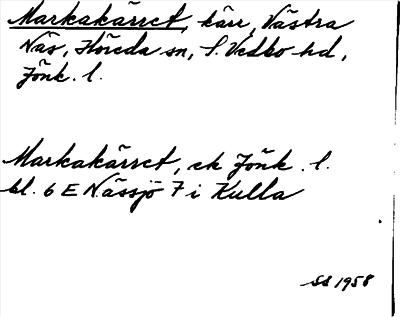 Markakärret, kärr, Västra
Näs, Höreda sn, S. Vedbo hd,
Jönk. l.
Markakärret, ek Jönk. l.
bl. 6 E Nässjö 7 i Kulla
SS 1958